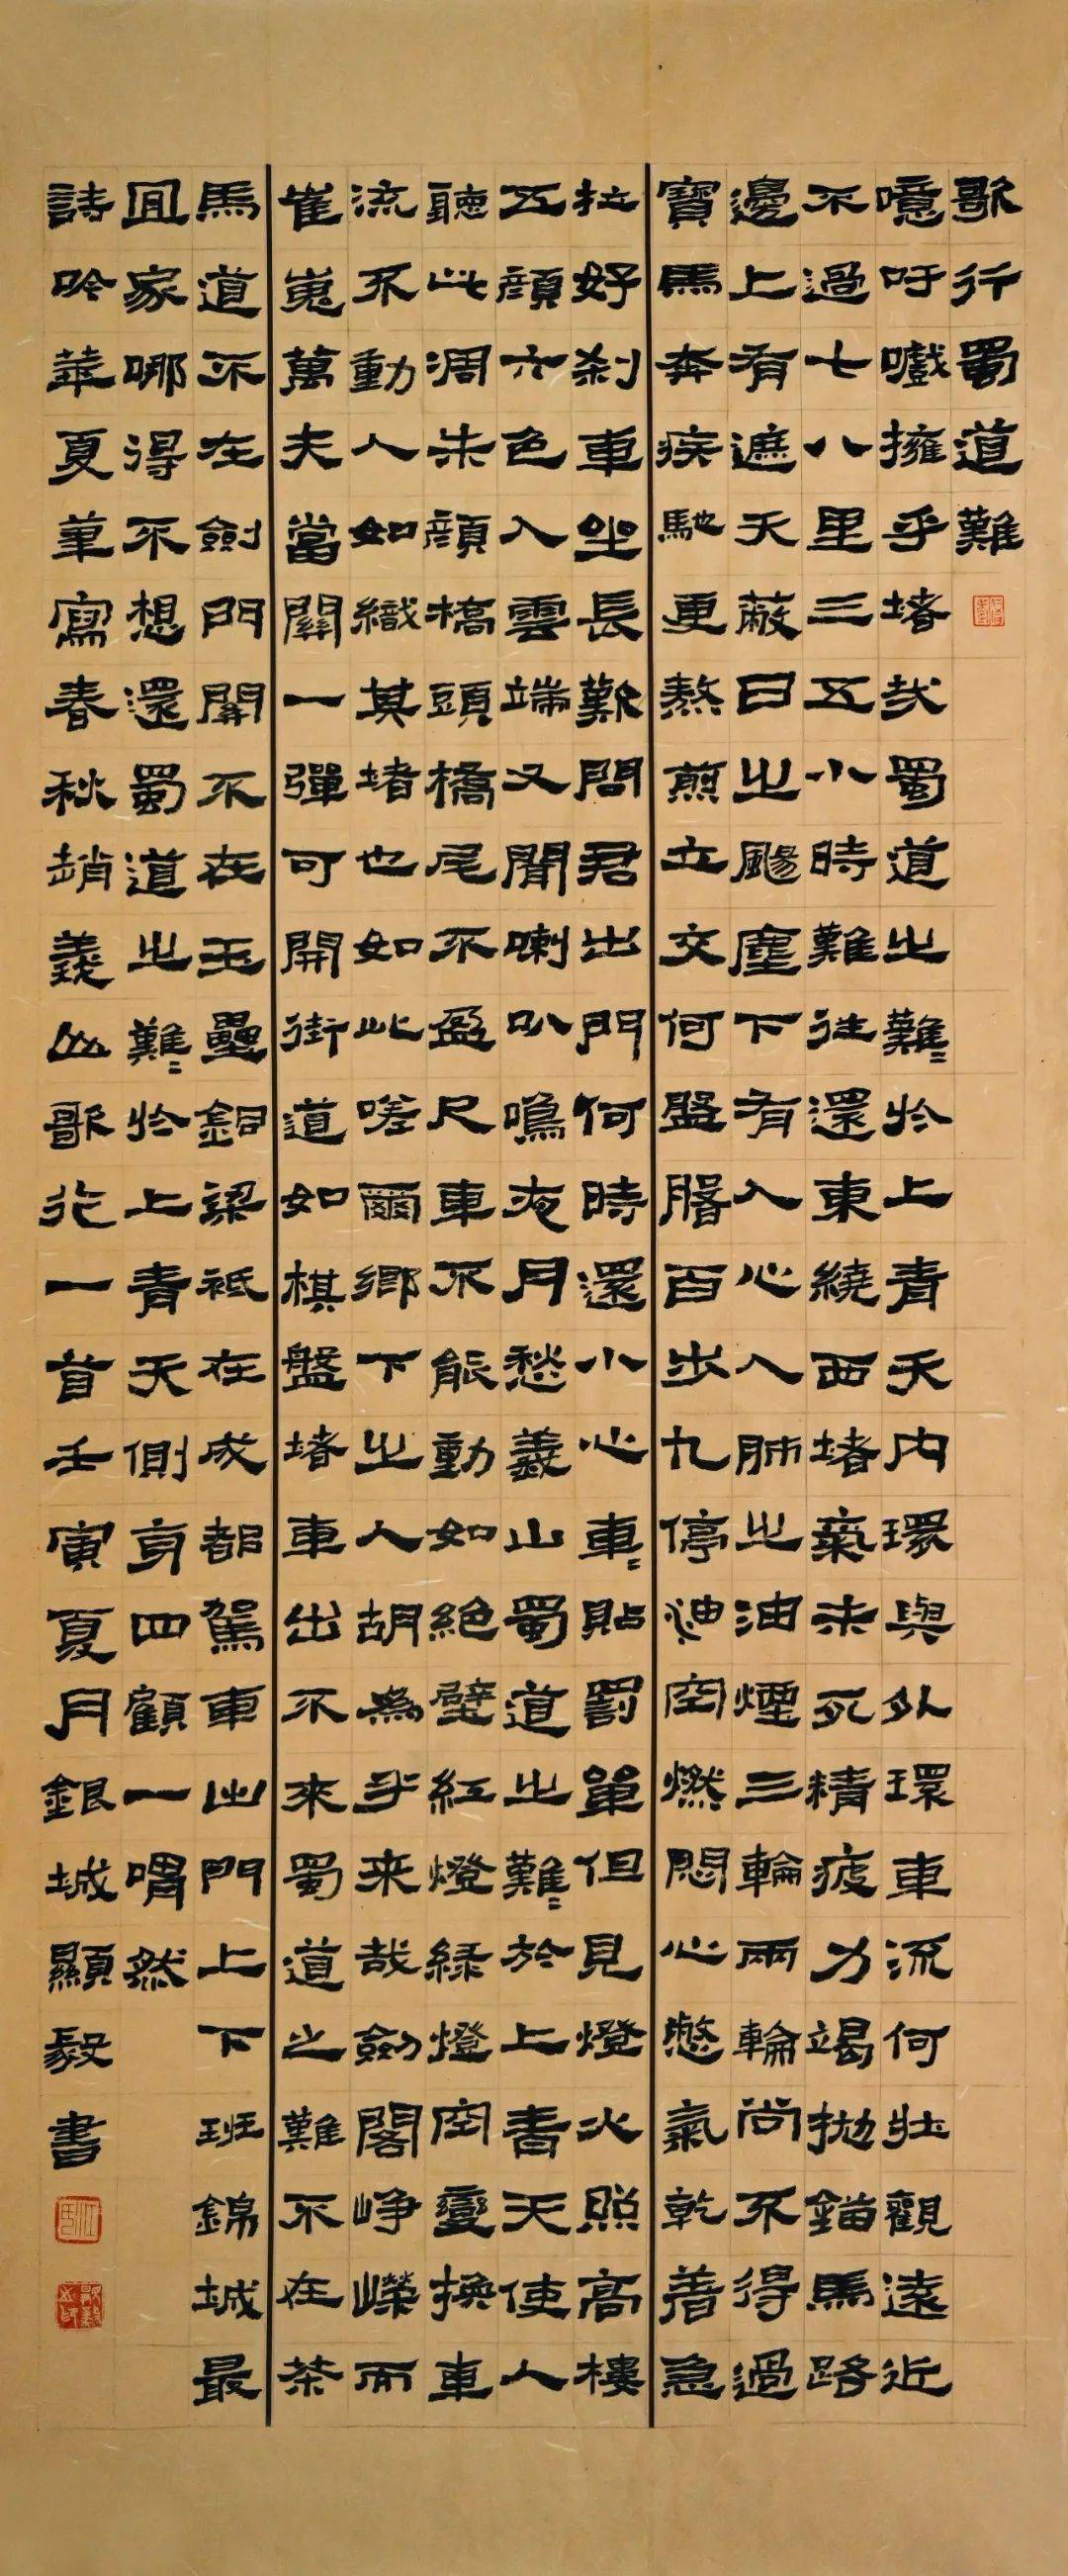 歌行蜀道難
噫吁嚱擁乎堵哉蜀道之難〻於上青天内環與外環車流何壯觀遠近
不過七八里三五小時難往還東繞西堵氣未死精疲力竭拋錨馬路
邊上有遮天蔽日之颺塵下有入心入肺之油煙三輪兩輪尚不得過
寶馬奔疾馳更熬煎立交何盤百步九停空燃悶心憋氣乾着急
拉好刹車坐長歎問君出門何時還小心車〻貼罰單但見燈火照高樓
五顔六色入雲端又聞喇叭鳴夜月愁義山蜀道之難〻於上青天使人
聽此凋朱顔橋頭橋尾不盈尺車不能動如絕壁紅燈緑燈空變換車
流不動人如織其堵也如此嗟爾鄉下之人胡為乎来哉劍閣崢嶸而
崔嵬萬夫當關一彈可開街道如棋盤堵車出不來蜀道之難不在茶
馬道不在劍門關不在玉壘銅梁祗在成都駕車出門上下班錦城最
宜家哪得不想還蜀道之難〻於上青天側身四顧一喟然
詩吟華夏筆寫春秋趙義山歌行一首壬寅夏月銀城顯毅書